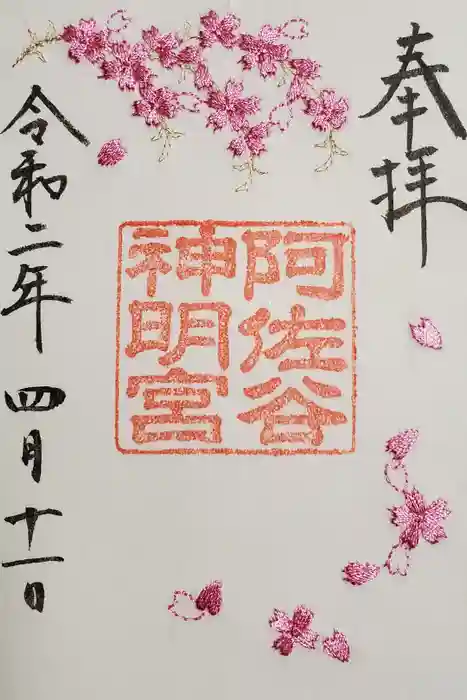 奉拝
阿佐谷
神明宮
令和二年 四月十一日